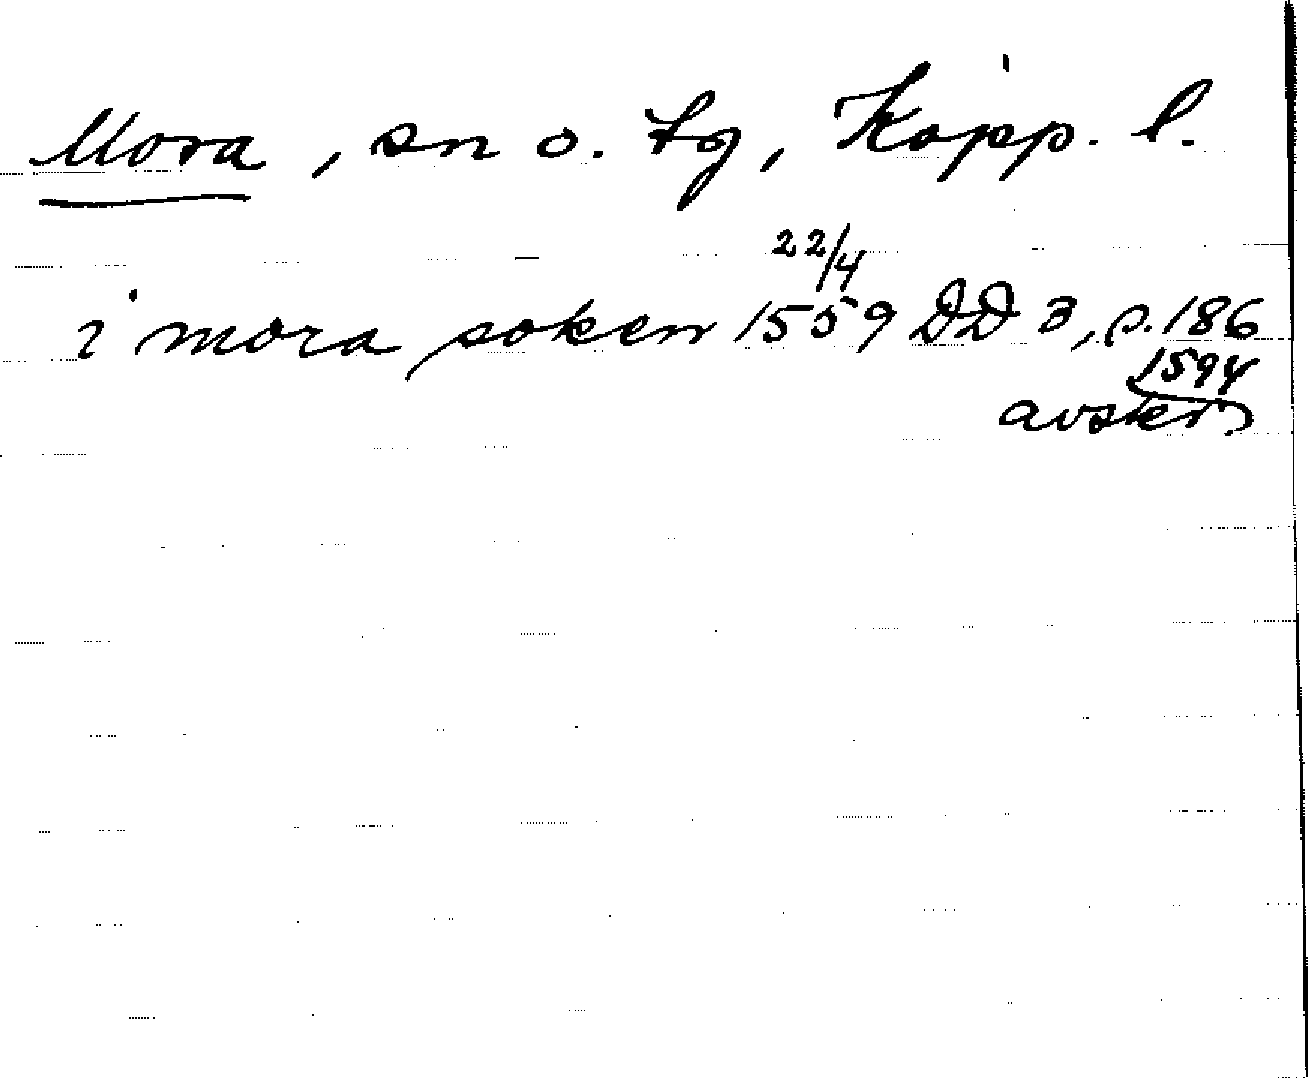 Mora, sn o. tg, Kopp. l.
22/4
i mora soken 1559 DD 3, s. 186
1594
avskr